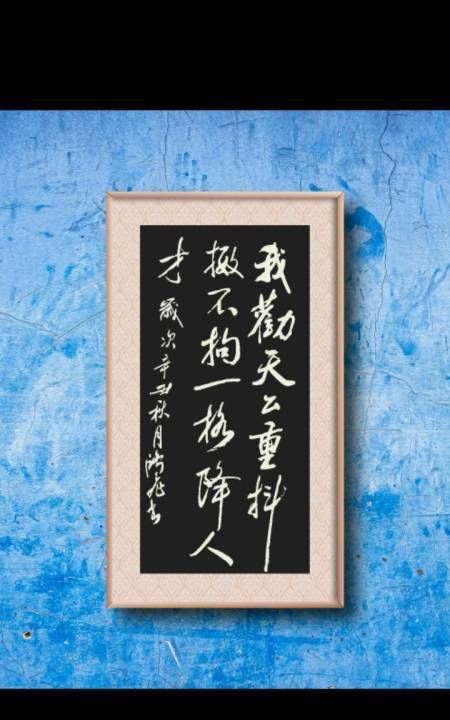 我勸天公重抖
擻不拘一格降人
才
歲次辛丑秋月